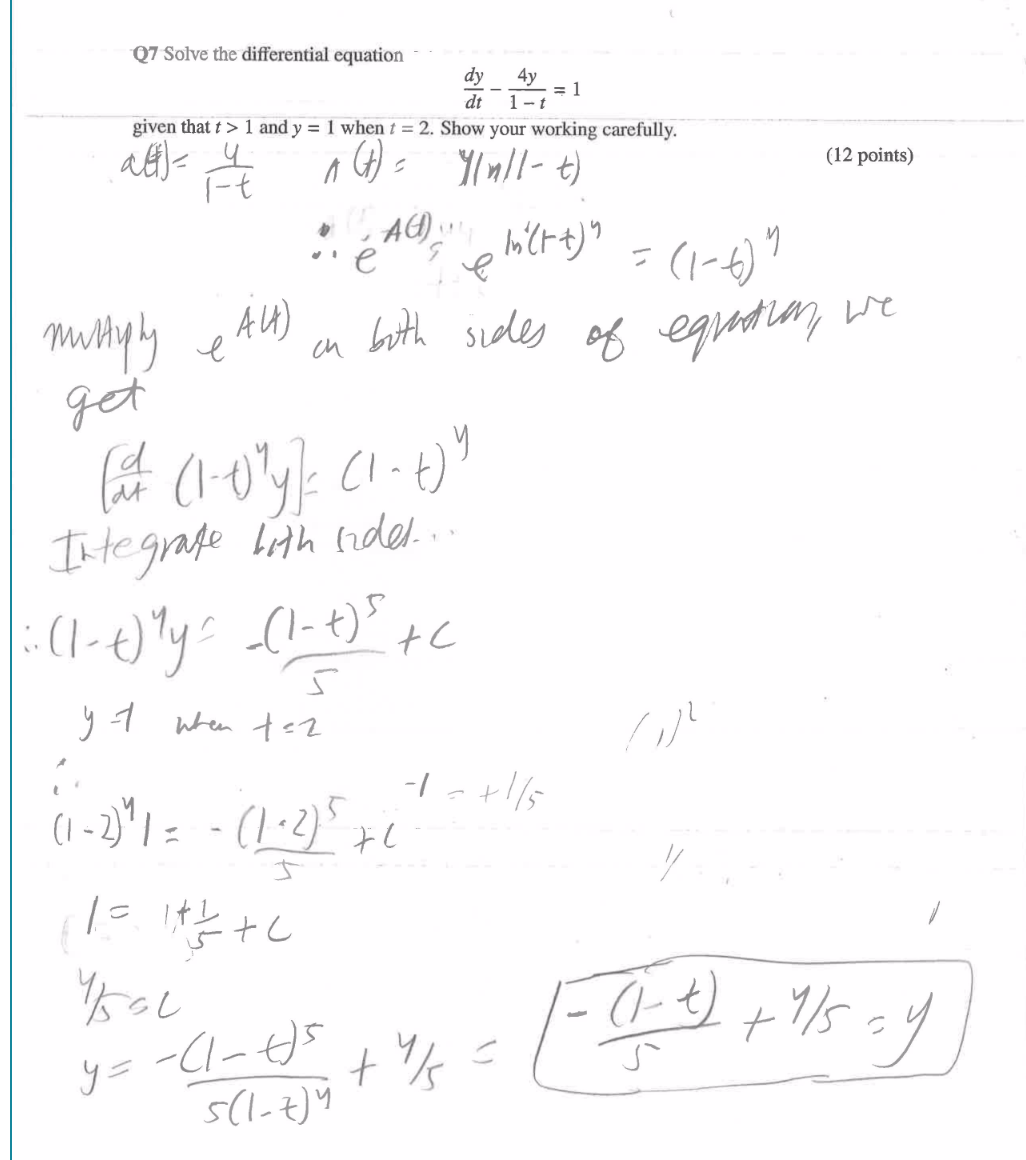 Q7 Solve the differential equation
dy/dt - 4y/(1 - t) = 1
given that t > 1 and y = 1 when t = 2. Show your working carefully.
(12 points)
a(t) = 4/(1-t)   A(t) = 4 ln(1-t)
∴ e^A(t) = e^ln(1-t)^4 = (1-t)^4
multiply e^A(t) on both sides of equation, we
get
[d/dt (1-t)^4 y] = (1-t)^4
Integrate both sides...
∴ (1-t)^4 y = -(1-t)^5/5 + C
y=1 when t=2
(1)^2
∴
-1 = +1/5
(1-2)^4 1 = -(1-2)^5/5 + C
1 = 1+1/5 + C
4/5 = C
y = -(1-t)^5/5(1-t)^4 + 4/5 = -(1-t)/5 + 4/5 = y